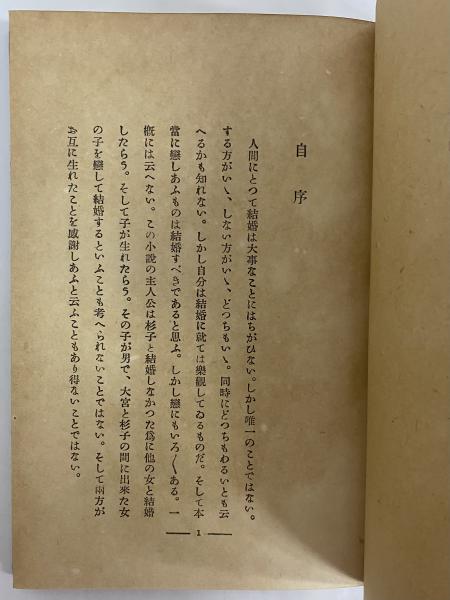 自序
人間にとつて結婚は大事なことにはちがひない。しかし唯一のことではない。
する方がいゝ、しない方がいゝ、どつちもいゝ。同時にどつちもわるいとも云
へるかも知れない。しかし自分は結婚に就ては樂觀してゐるものだ。そして本
當に戀しあふものは結婚すべきであると思ふ。しかし戀にもいろ〳〵ある。一
概には云へない。この小説の主人公は杉子と結婚しなかつた爲に他の女と結婚
したらう。そして子が生れたらう。その子が男で、大宮と杉子の間に出來た女
の子を戀して結婚するといふことも考へられないことではない。そして兩方が
お互に生れたことを感謝しあふと云ふこともあり得ないことではない。
1